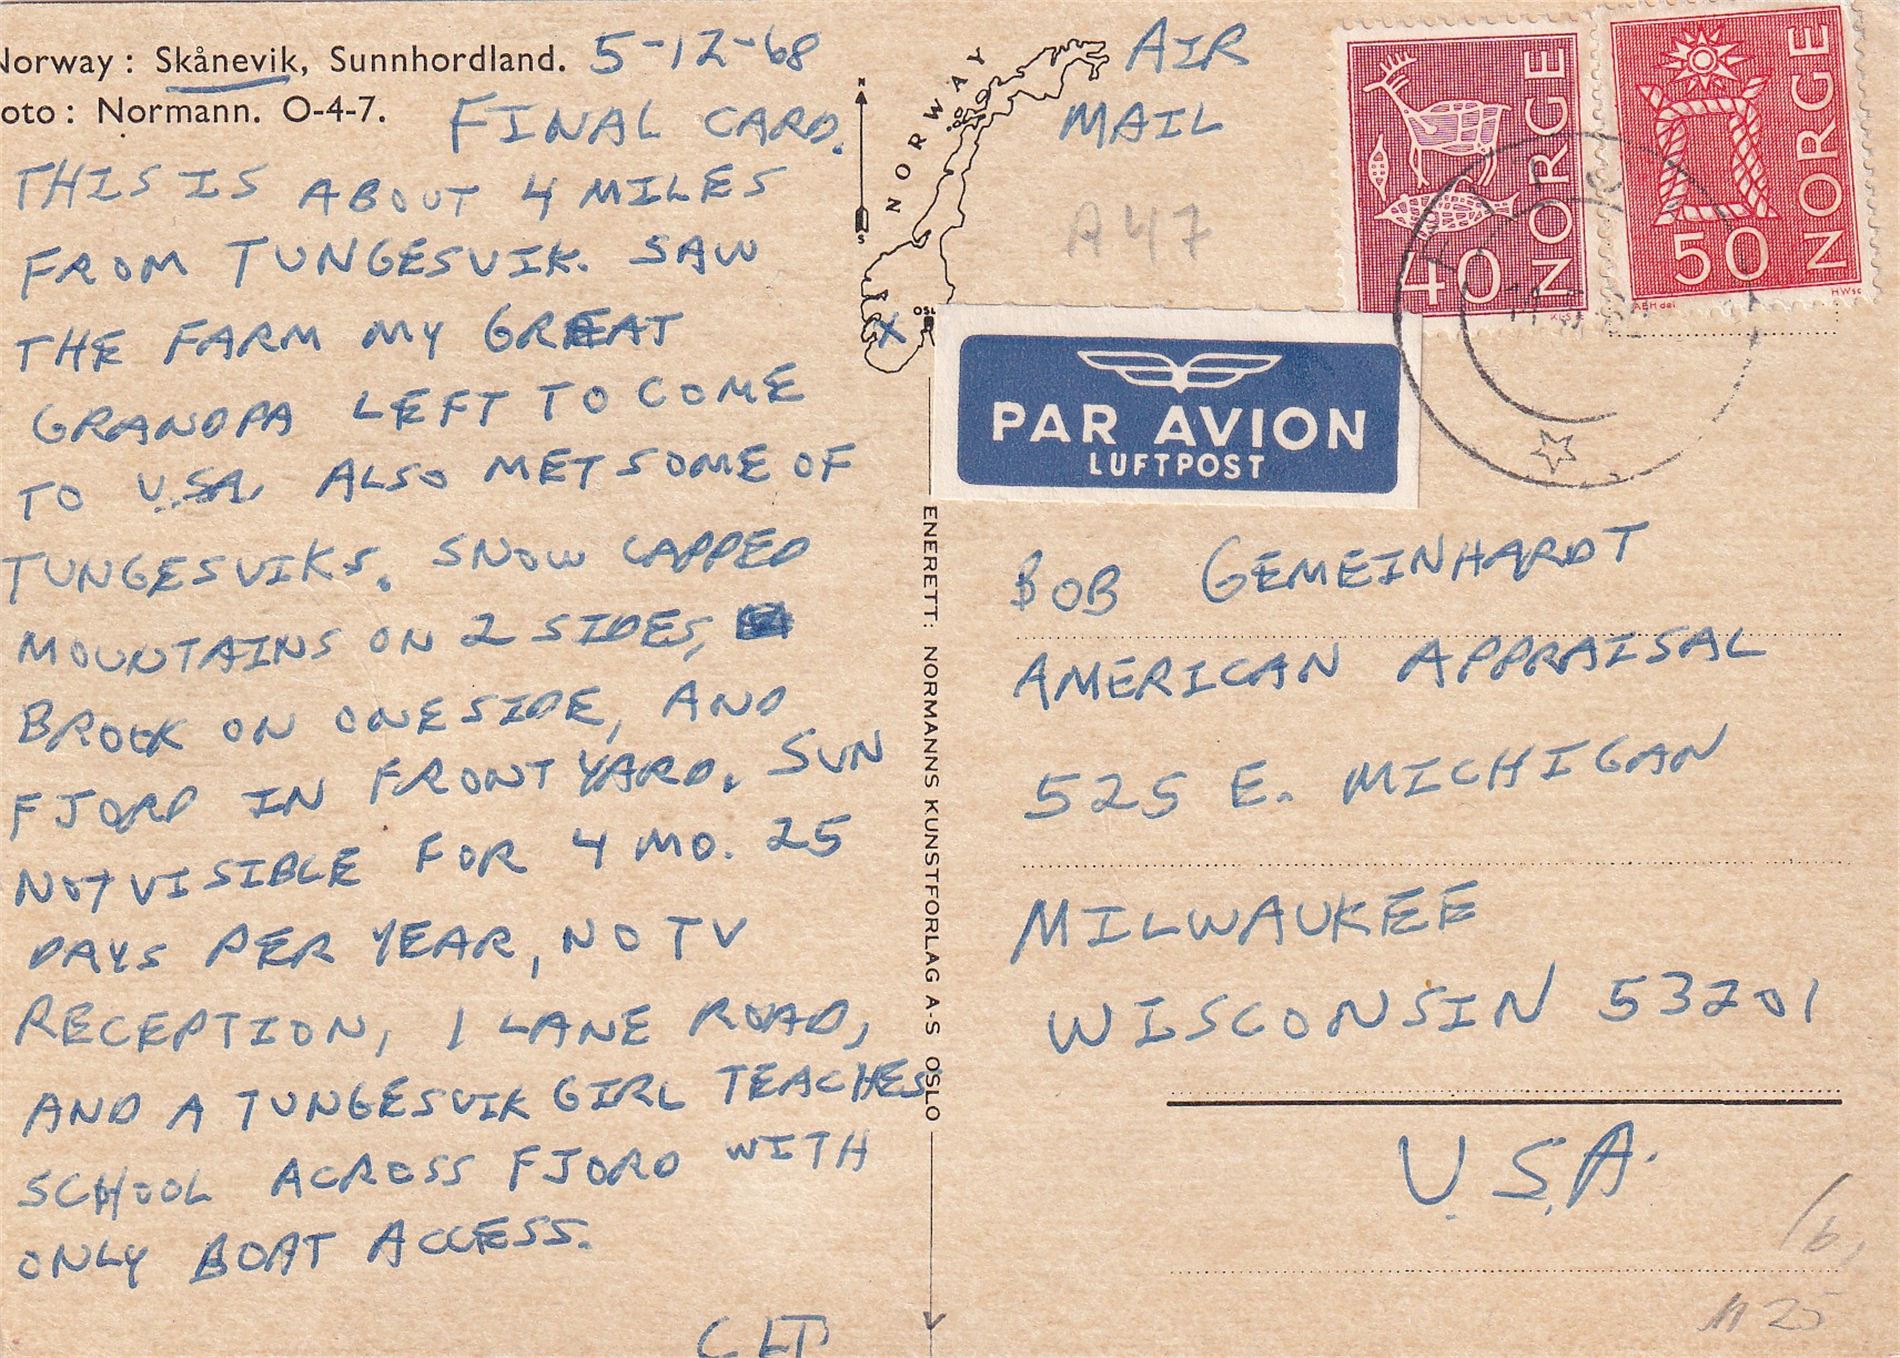 Norway : Skånevik, Sunnhordland. 5-12-68
oto : Normann. O-4-7.
FINAL CARD.
THIS IS ABOUT 4 MILES
FROM TUNGESVIK. SAW
THE FARM MY GREAT
GRANDPA LEFT TO COME
TO U.S.A. ALSO MET SOME OF
TUNGESVIKS. SNOW CAPPED
MOUNTAINS ON 2 SIDES,
BROOK ON ONE SIDE, AND
FJORD IN FRONT YARD. SUN
NOT VISIBLE FOR 4 MO. 25
DAYS PER YEAR, NO TV
RECEPTION, 1 LANE ROAD,
AND A TUNGESVIK GIRL TEACHES
SCHOOL ACROSS FJORD WITH
ONLY BOAT ACCESS.
CLT
N
S
NORWAY
X
ENERETT: NORMANNS KUNSTFORLAG A-S OSLO
AIR
MAIL
A 47
40 NORGE
50 NORGE
AEH del
HWsc
PAR AVION
LUFTPOST
BOB GEMEINHARDT
AMERICAN APPRAISAL
525 E. MICHIGAN
MILWAUKEE
WISCONSIN 53201
U.S.A.
25